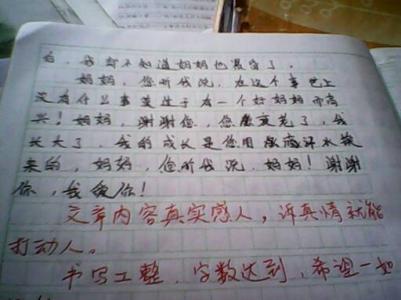 白，我都不知道妈妈也混白了。
妈妈，您听我说，在这个事世上
没有什么事莫过于有一个好妈妈而高
兴！妈妈，谢谢您，您变老了，我
长大了，我的成长是您用血滴汗水换
来的，妈妈，您听我说，妈妈！谢谢
你，我爱你！
文章内容真实感人，诉真情就能
打动人。
书写工整，字数达到，希望一如